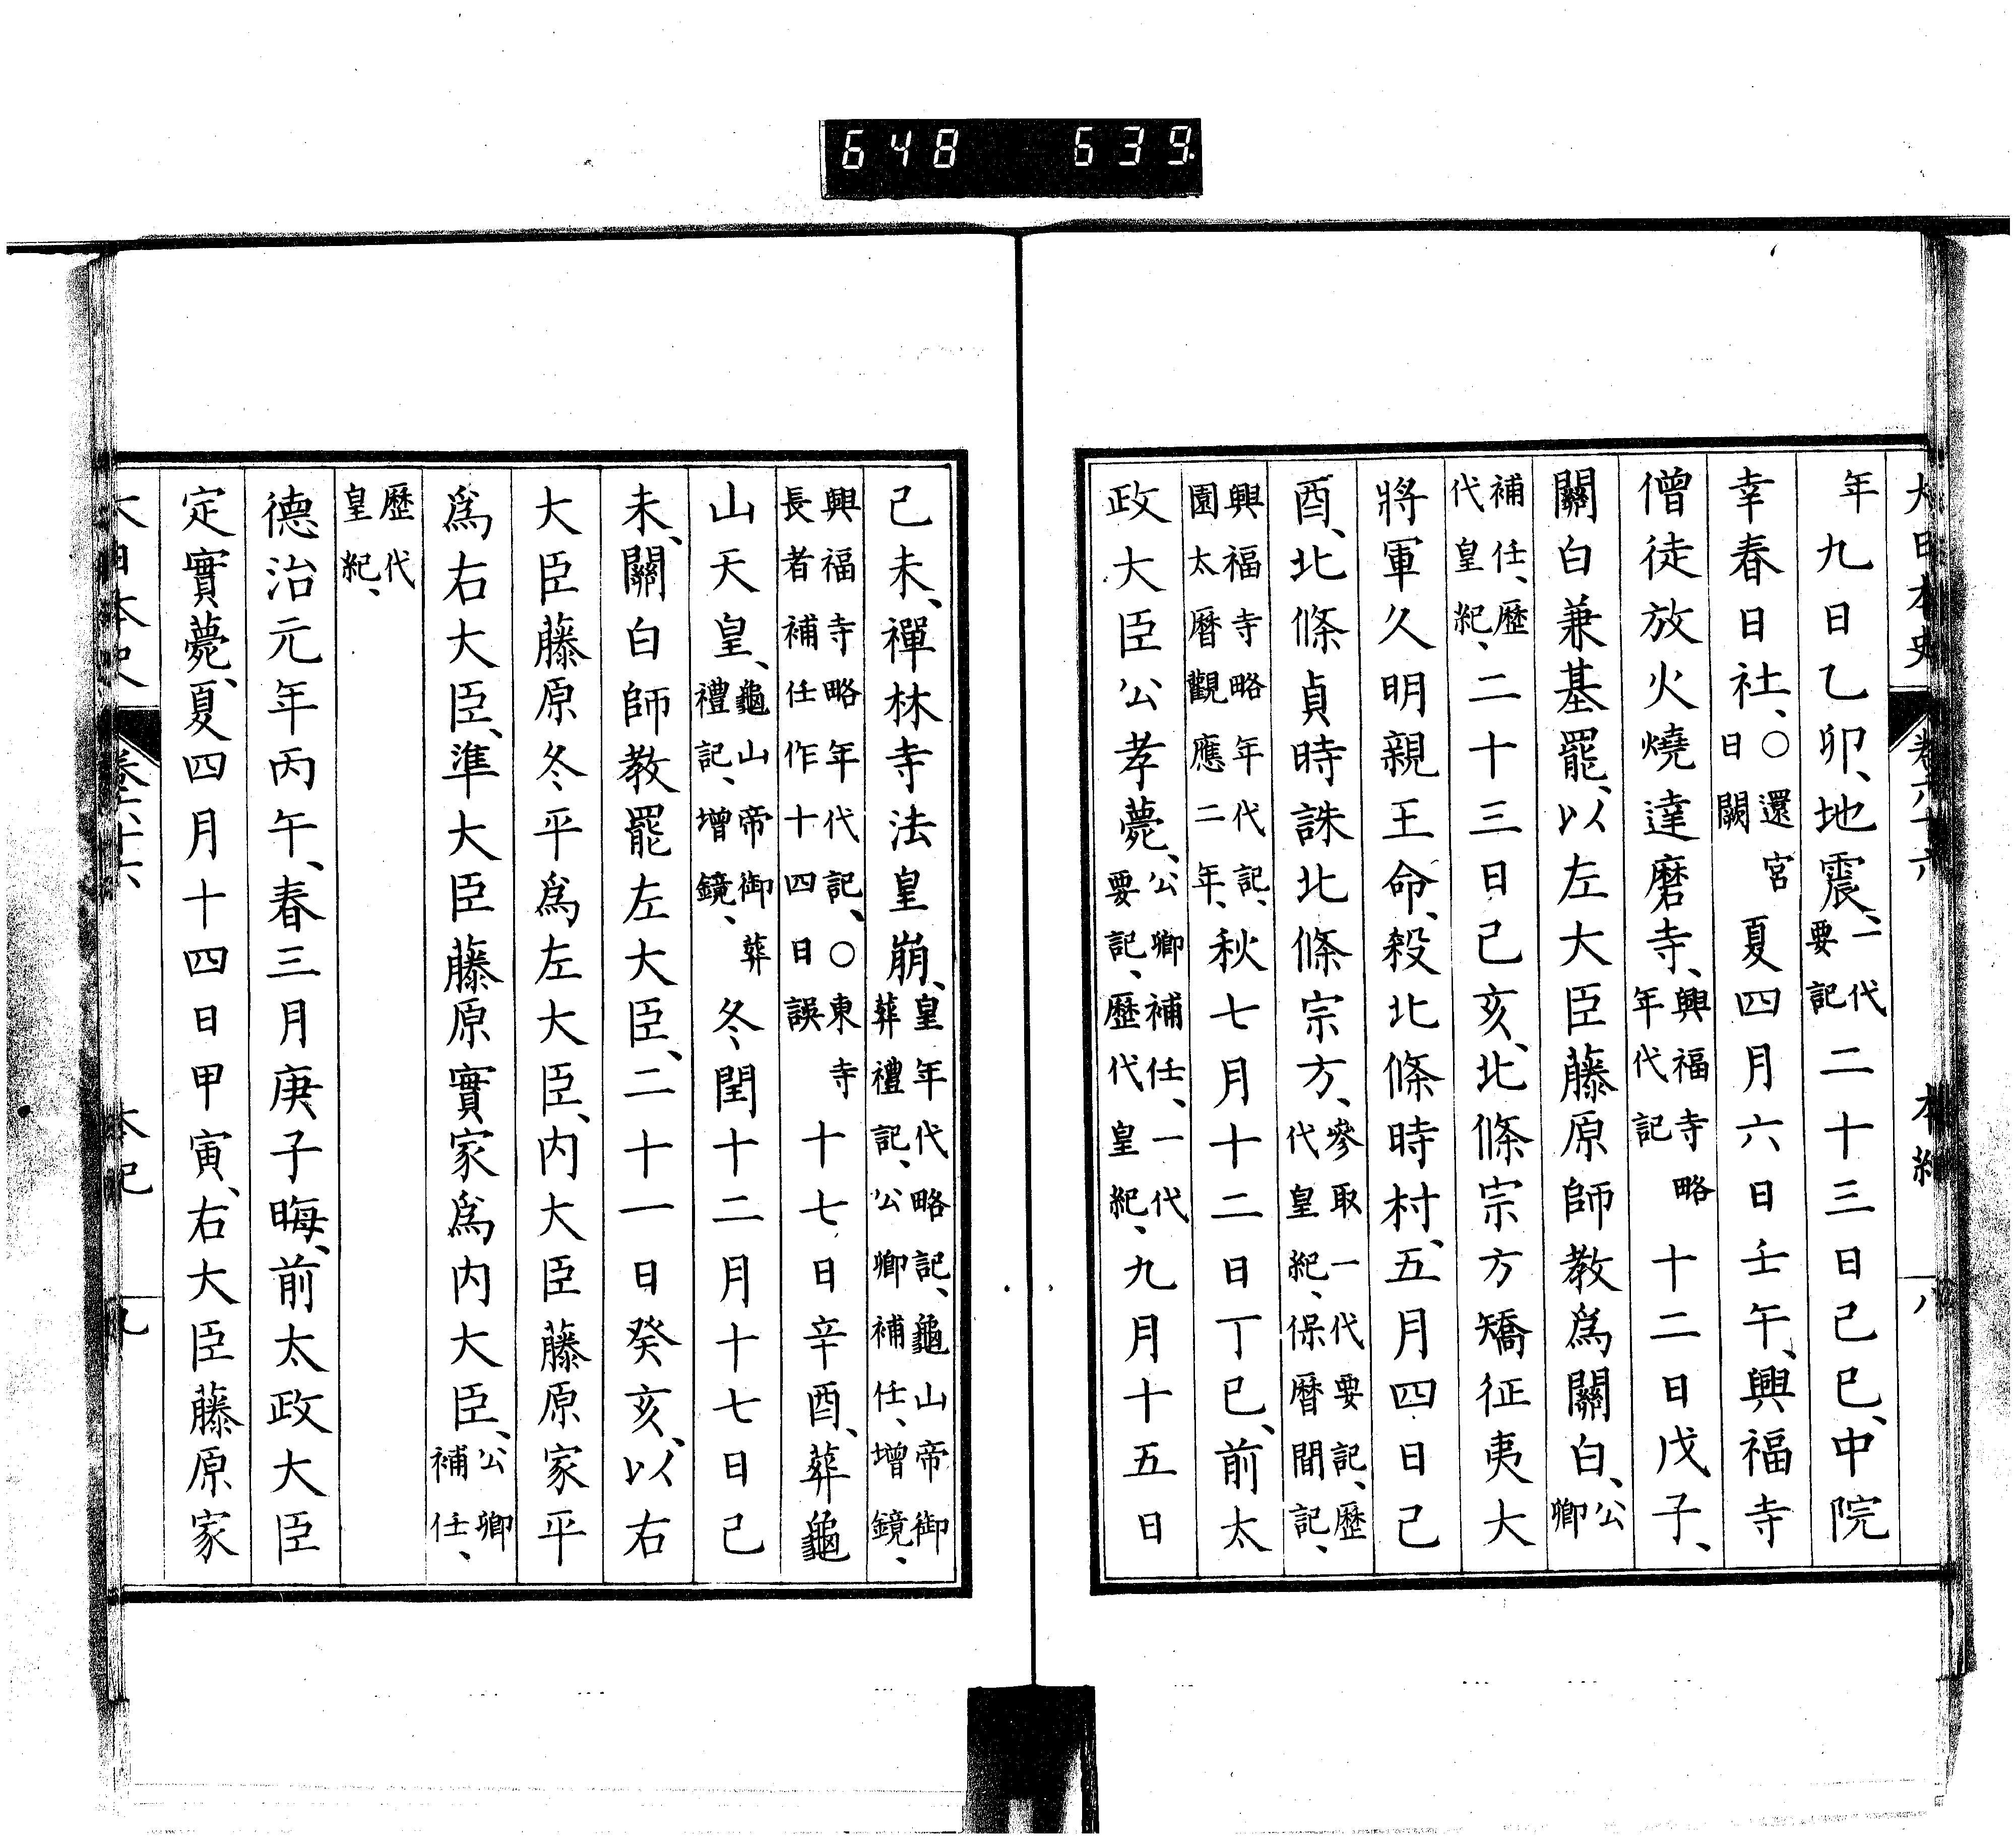 648 639
大日本史 卷六十六 本紀 八
年九日乙卯、地震、一代要記二十三日己巳、中院
幸春日社、○還宮日闕夏四月六日壬午、興福寺
僧徒放火燒達磨寺、興福寺略年代記十二日戊子、
關白兼基罷、以左大臣藤原師教爲關白、公卿
補任、歷代皇紀、二十三日己亥、北條宗方矯征夷大
將軍久明親王命、殺北條時村、五月四日己
酉、北條貞時誅北條宗方、參取一代要記、歷代皇紀、保曆間記、
興福寺略年代記、園太曆觀應二年、秋七月十二日丁巳、前太
政大臣公孝薨、公卿補任、一代要記、歷代皇紀、九月十五日
己未、禪林寺法皇崩、皇年代略記、龜山帝御葬禮記、公卿補任、增鏡、
興福寺略年代記、○東寺長者補任作十四日誤十七日辛酉、葬龜
山天皇、龜山帝御葬禮記、增鏡、冬閏十二月十七日己
未、關白師教罷左大臣、二十一日癸亥、以右
大臣藤原冬平爲左大臣、内大臣藤原家平
爲右大臣、準大臣藤原實家爲内大臣、公卿補任、
歷代皇紀、
德治元年丙午、春三月庚子晦、前太政大臣
定實薨、夏四月十四日甲寅、右大臣藤原家
大日本史 卷六十六 本紀 九